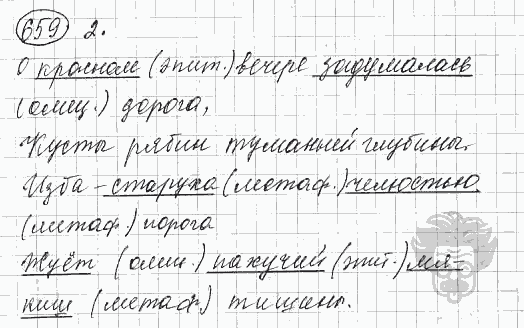 659 2.
О красном (эпит.) вечере задумалась
(олиц.) дорога,
Кусты рябин туманней глубины.
Изба – старуха (метаф.) челюстью
(метаф.) порога
Жуёт (олиц.) пахучий (эпит.) мя-
киш (метаф.) тишины.